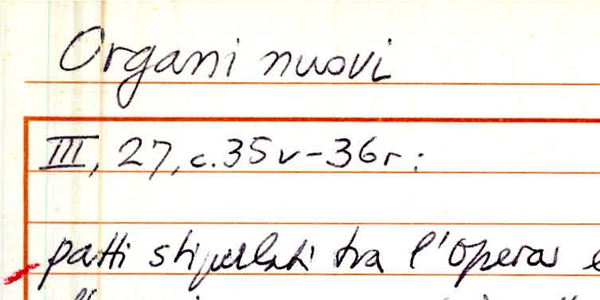 Organi nuovi
III, 27, c. 35v-36r:
patti stipulati tra l'Opera e